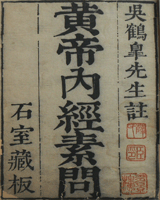 吳鶴臯先生註
黄帝內經素問
石室藏板